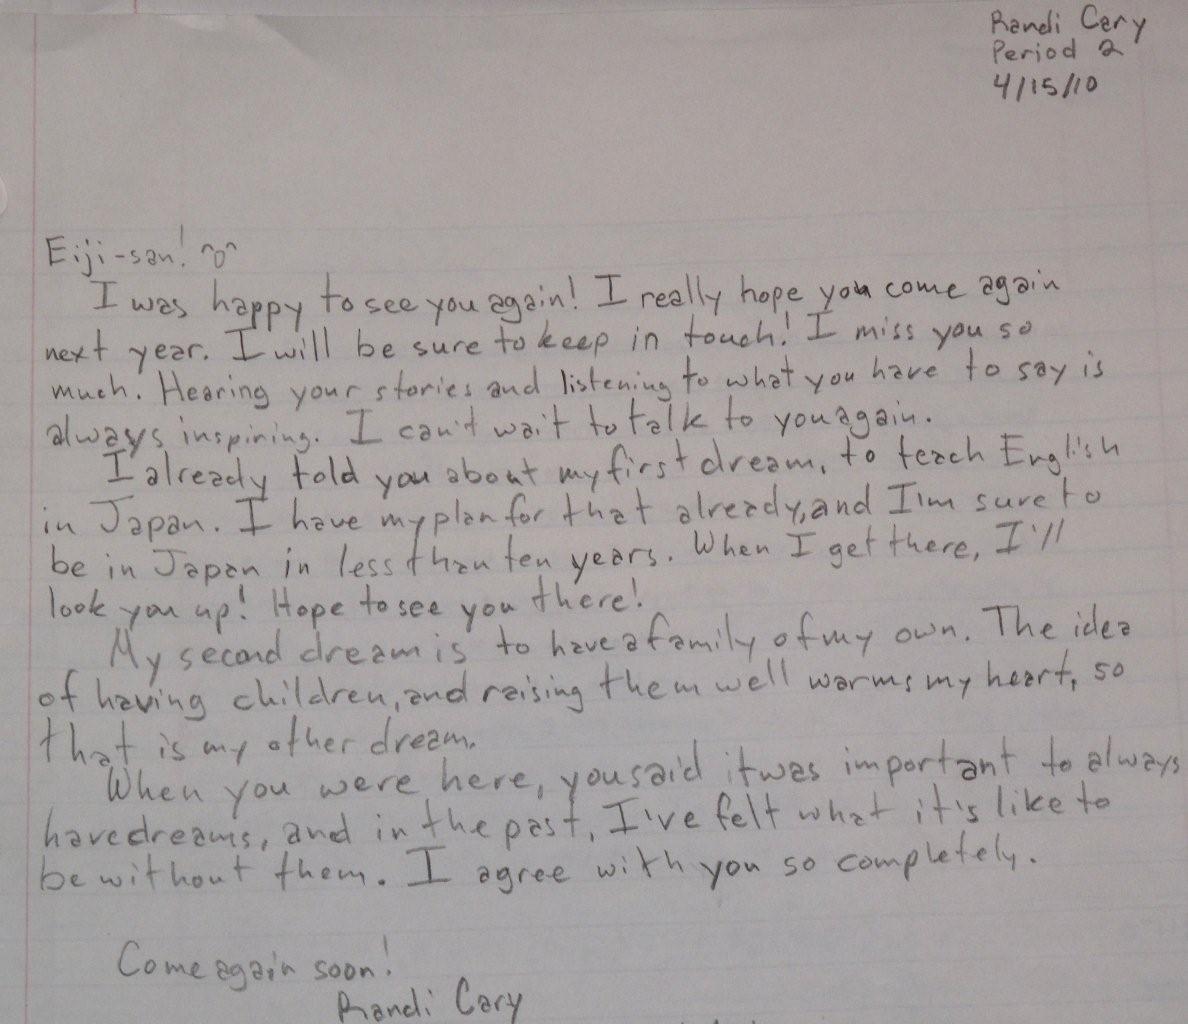 Randi Cary
Period 2
4/15/10
Eiji-san! ^o^
I was happy to see you again! I really hope you come again
next year. I will be sure to keep in touch! I miss you so
much. Hearing your stories and listening to what you have to say is
always inspiring. I can't wait to talk to you again.
I already told you about my first dream, to teach English
in Japan. I have my plan for that already, and I'm sure to
be in Japan in less than ten years. When I get there, I'll
look you up! Hope to see you there!
My second dream is to have a family of my own. The idea
of having children, and raising them well warms my heart, so
that is my other dream.
When you were here, you said it was important to always
have dreams, and in the past, I've felt what it's like to
be without them. I agree with you so completely.
Come again soon!
Randi Cary